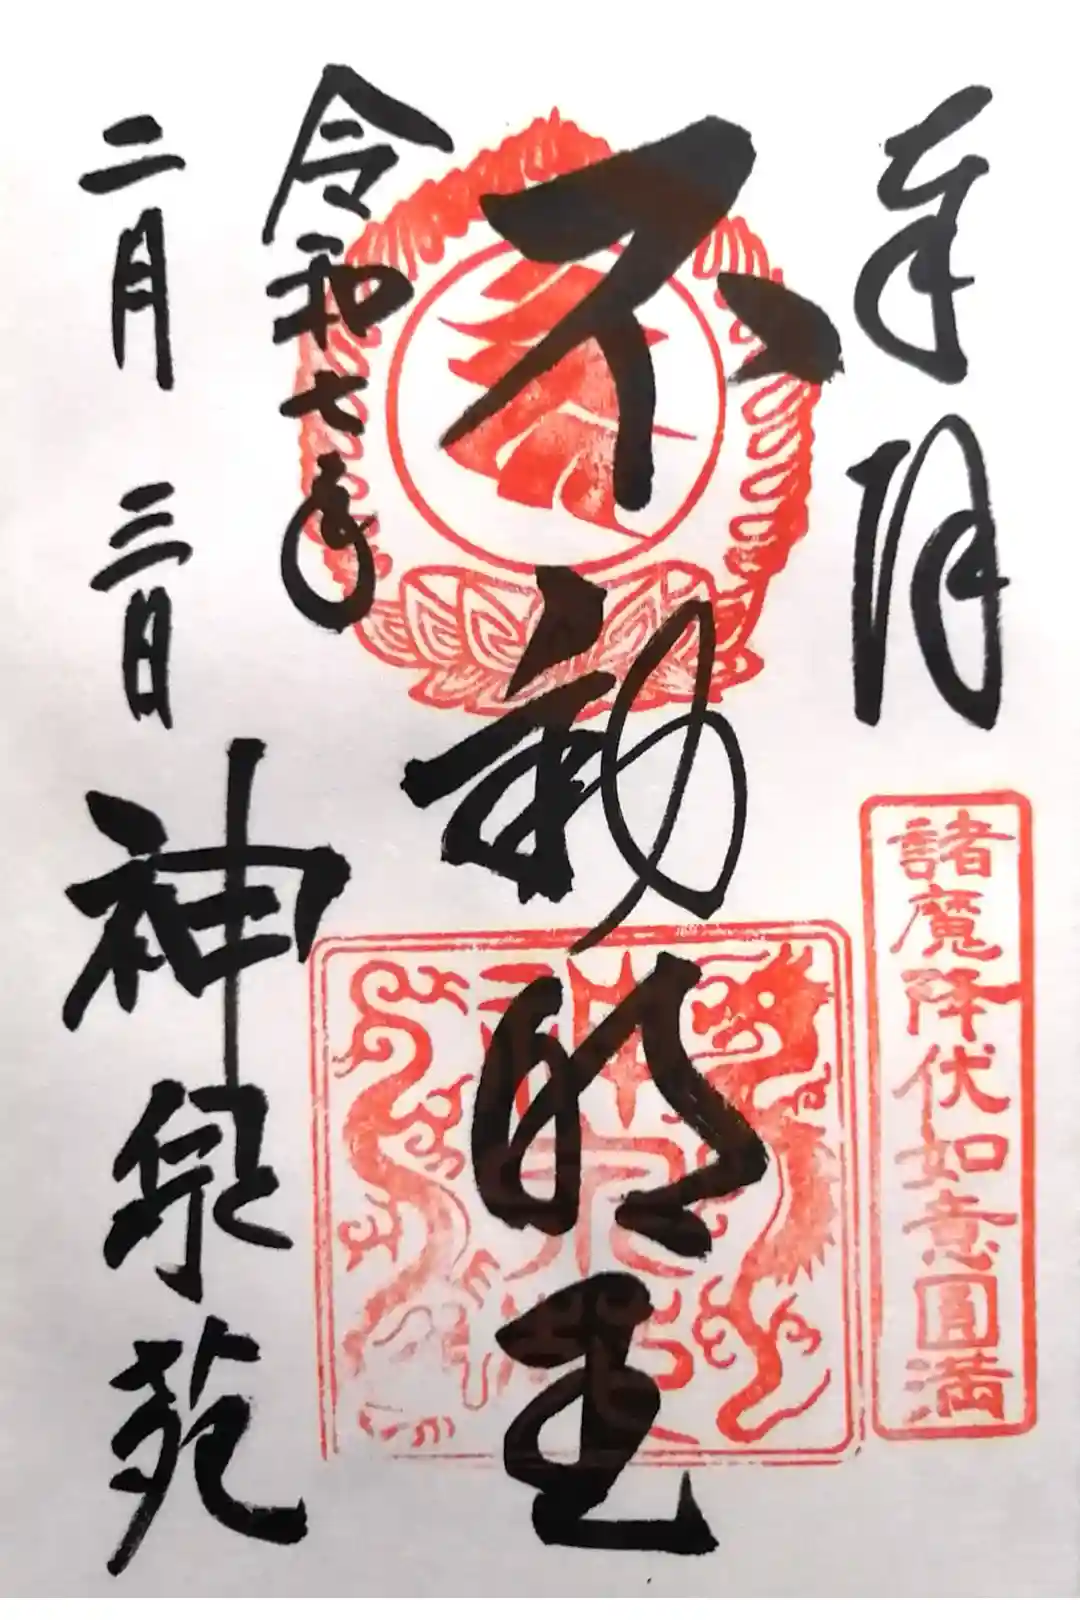 奉拝
諸魔降伏如意圓満
不動明王
令和七年
二月三日
神泉苑
神泉苑